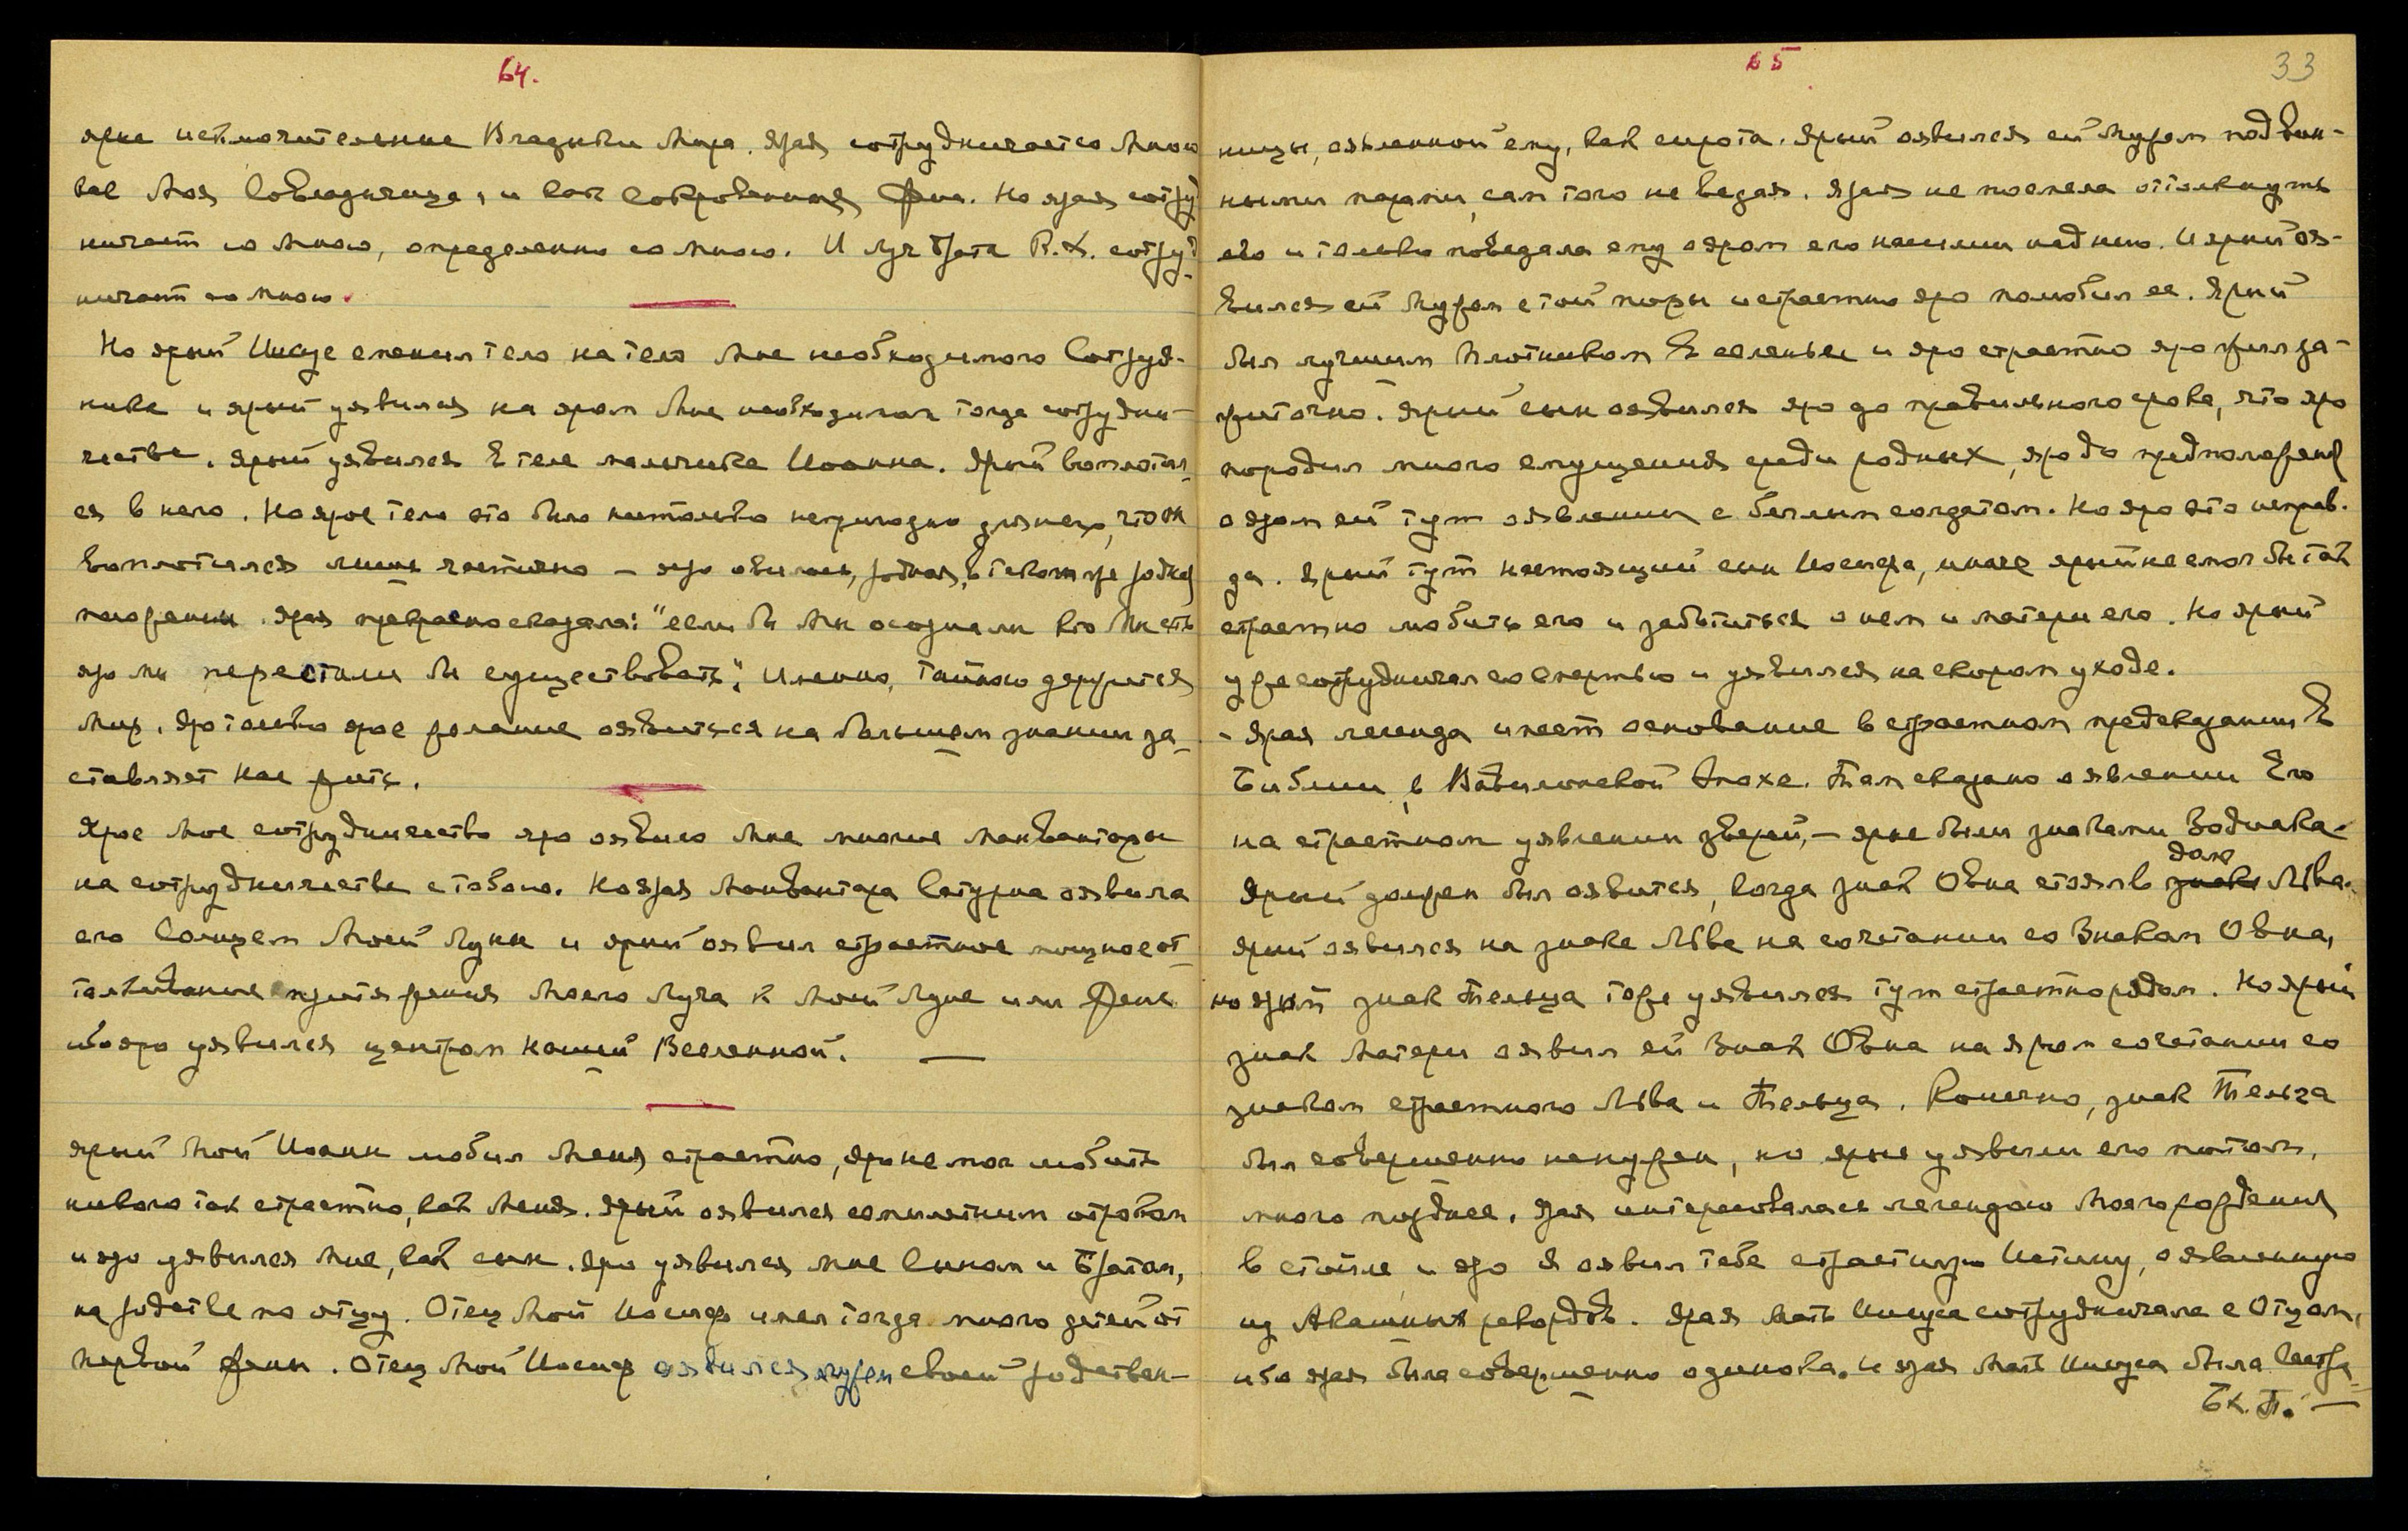 64.
ярке исключительные Владыки Мира. Ярая сотрудничает со Мною
как Моя Совладычица, и как сокровенная Жена. Но ярая сотруд-
ничает со Мною, определенно со Мною. И луч Брата R.Х. сотруд-
ничает со Мною.
Но ярый Иисус сменил тело на тело Мне необходимого Сотруд-
ника и ярый уявился на яром Мне необходимом тогда сотрудни-
честве. Ярый уявился в теле мальчика Иоанна. Ярый воплотил-
ся в него. Но ярое тело это было настолько непригодно для него, что он
воплотился лишь частично – яро явилось, родная, в таком же родном
положении. Ярая прекрасно сказала: "если бы мы осознали кто Мы есть
яро мы перестали бы существовать". Именно, тайною держится
Мир. Яро только ярое желание оявиться на большем знании за-
ставляет нас жить.
Ярое Мое сотрудничество яро оявило Мне многие Манвантары
на сотрудничестве с тобою. Но ярая Манвантара Сатурна оявила
его Солнцем Моей Луны и ярый оявил страстное мощное от-
талкивание притяжения Моего Луча к Моей Луне или Жене
ибо яро уявился центром нашей Вселенной. —
Ярый Мой Иоанн любил Меня страстно, яро не мог любить
никого так страстно, как Меня. Ярый оявился семилетним отроком
и яро уявился Мне, как сын. Яро уявился Мне Сыном и Братом,
на родстве по отцу. Отец Мой Иосиф имел тогда много детей от
первой жены. Отец Мой Иосиф оявился мужем своей родствен-
65
33
ницы, оявленной ему, как сирота. Ярый оявился ей Мужем под вин-
ными парами, сам того не ведая. Ярая не посмела оттолкнуть
его и только поведала ему о яром его насилии над нею. И ярый оя-
вился ей Мужем с той поры и страстно яро полюбил ее. Ярый
был лучшим плотником в селеньи и яро страстно яро жил за-
житочно. Ярый сын оявился яро до правильного срока, что яро
породил много смущения среди родных, яро до предположения
о яром ей тут оявлении с беглым солдатом. Но яро это неправ-
да. Ярый тут настоящий сын Иосифа, иначе ярый не смог бы так
страстно любить его и заботиться о нем и матери его. Но ярый
уже сотрудничал со Смертью и уявился на скором уходе.
- Ярая легенда имеет основание в страстном предсказании в
Библии, в Вавилонской эпохе. Там сказано о явлении Его
на страстном уявлении зверей, – ярые были знаками Зодиака.
Ярый должен был оявиться, когда знак Овна стоял в доме Льва.
Ярый оявился на знаке Льва на сочетании со Знаком Овна,
но ярый знак Тельца тоже уявился тут страстно рядом. Но ярый
знак Матери оявил ей Знак Овна на яром сочетании со
знаком страстного Льва и Тельца. Конечно, знак Тельца
был совершенно не нужен, но ярые уявили его потом,
много позднее. Ярая интересовалась легендою Моего рождения
в стойле и яро Я оявил тебе страстную Истину, оявленную
из Акашных рекордов. Ярая Мать Иисуса сотрудничала с Отцом,
ибо ярая была совершенно одинока. И ярая Мать Иисуса была Сестра